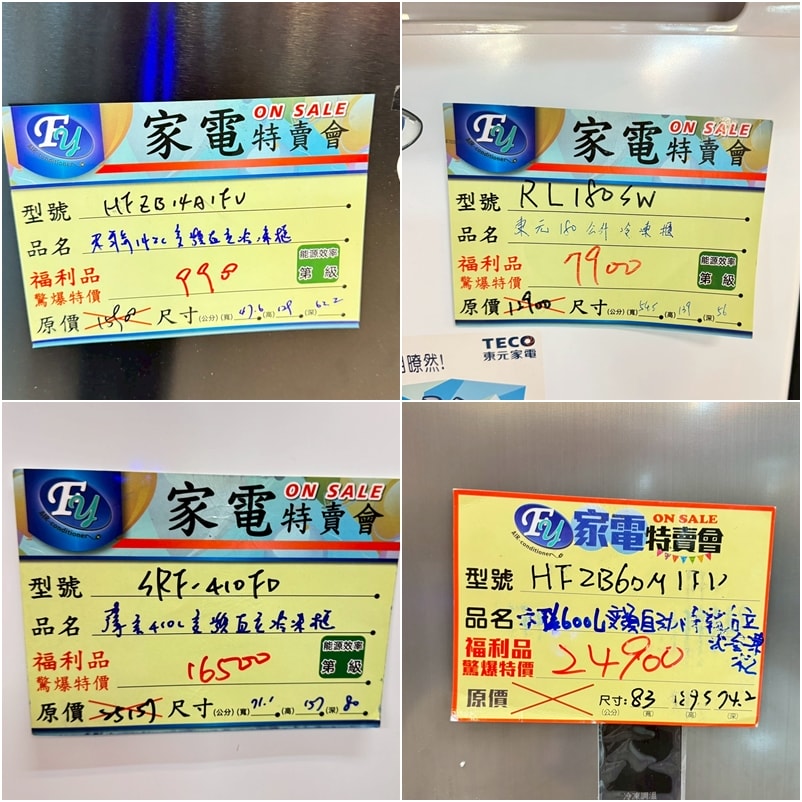 Fy
AIR-conditioner
家電特賣會 ON SALE
型號 HFZB14A1FV
品名 變頻直立冷凍櫃
福利品
驚爆特價 990
能源效率
第 級
原價 尺寸(公分)(寬) 47.6 (高) 129 (深) 62.2
Fy
AIR-conditioner
家電特賣會 ON SALE
型號 RL180SW
品名 東元180公升冷凍櫃
福利品
驚爆特價 7900
能源效率
第 級
原價 12900 尺寸(公分)(寬) 54.5 (高) 139 (深) 56
TECO
東元家電
目瞭然!
Fy
AIR-conditioner
家電特賣會 ON SALE
型號 SRF-410FD
品名 410L變頻直立冷凍櫃
福利品
驚爆特價 16500
能源效率
第 級
原價 尺寸(公分)(寬) 71.1 (高) 157 (深) 80
Fy
AIR-conditioner
家電特賣會 ON SALE
型號 HFZB60M1FV
品名 600L
福利品
驚爆特價 24900
原價 尺寸: 83 189.5 74.2
(公分) (寬) (高) (深)
冷凍調溫